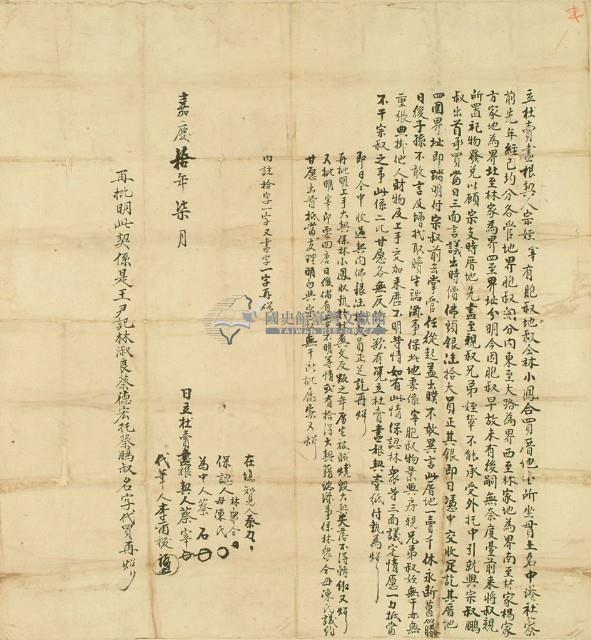 立杜賣盡根契人宗姪宰有胞叔地叔仝林小鳳合買厝地乙所坐貫土名中港社蔡
前先年經已均分各管地界胞叔
分內東至大路為界西至林家地為界南至林家楊家
方家地為界北至林家為界四至界址分明今因胞叔早故未有後嗣無奈度臺前來將叔親
所置祀物發兌以顧宗支時厝地先盡至親叔兄弟姪輩不能承受外托中引就與宗叔鵬
叔出首承買當日三面言議出時價佛頭銀
拾大員正其銀即日憑中交收足訖其厝地
四圍界址即踏明付宗叔前去掌管任從起蓋出賧不敢異言此厝地一賣千休永斷葛藤
日後子孫不敢言及增找取贖生端滋事保此地委係宰胞叔物業與房親兄弟叔姪無干亦無
重張典掛他人財物及上手交加來歷不明等情如有此情保認林眾等三面議定情愿一力抵當
不干宗叔之事此係二比甘愿各無反
欲有憑立杜賣盡根契壹紙付執為炤
即日仝中收過契內佛銀
員正足訖再炤
再批明上手大契係林小鳳收執
大契失落不得繳又炤
又批明宰即要回唐日後倘有
不明等情或有拾得大契藉端滋事保林眾仝母陳氏議約
甘愿出首抵當支理明白與宗
無干所批廣實又炤
內註拾字一字又書字一字再炤
在場知見人蔡九
保認人林眾仝母陳氏
為中人蔡石
嘉慶拾年柒月 日立杜賣盡根契人蔡宰
代筆人李甫
再批明此契係是王尹記林淑良蔡德宏托蔡鵬叔名字代買再炤
國史館臺灣文獻館